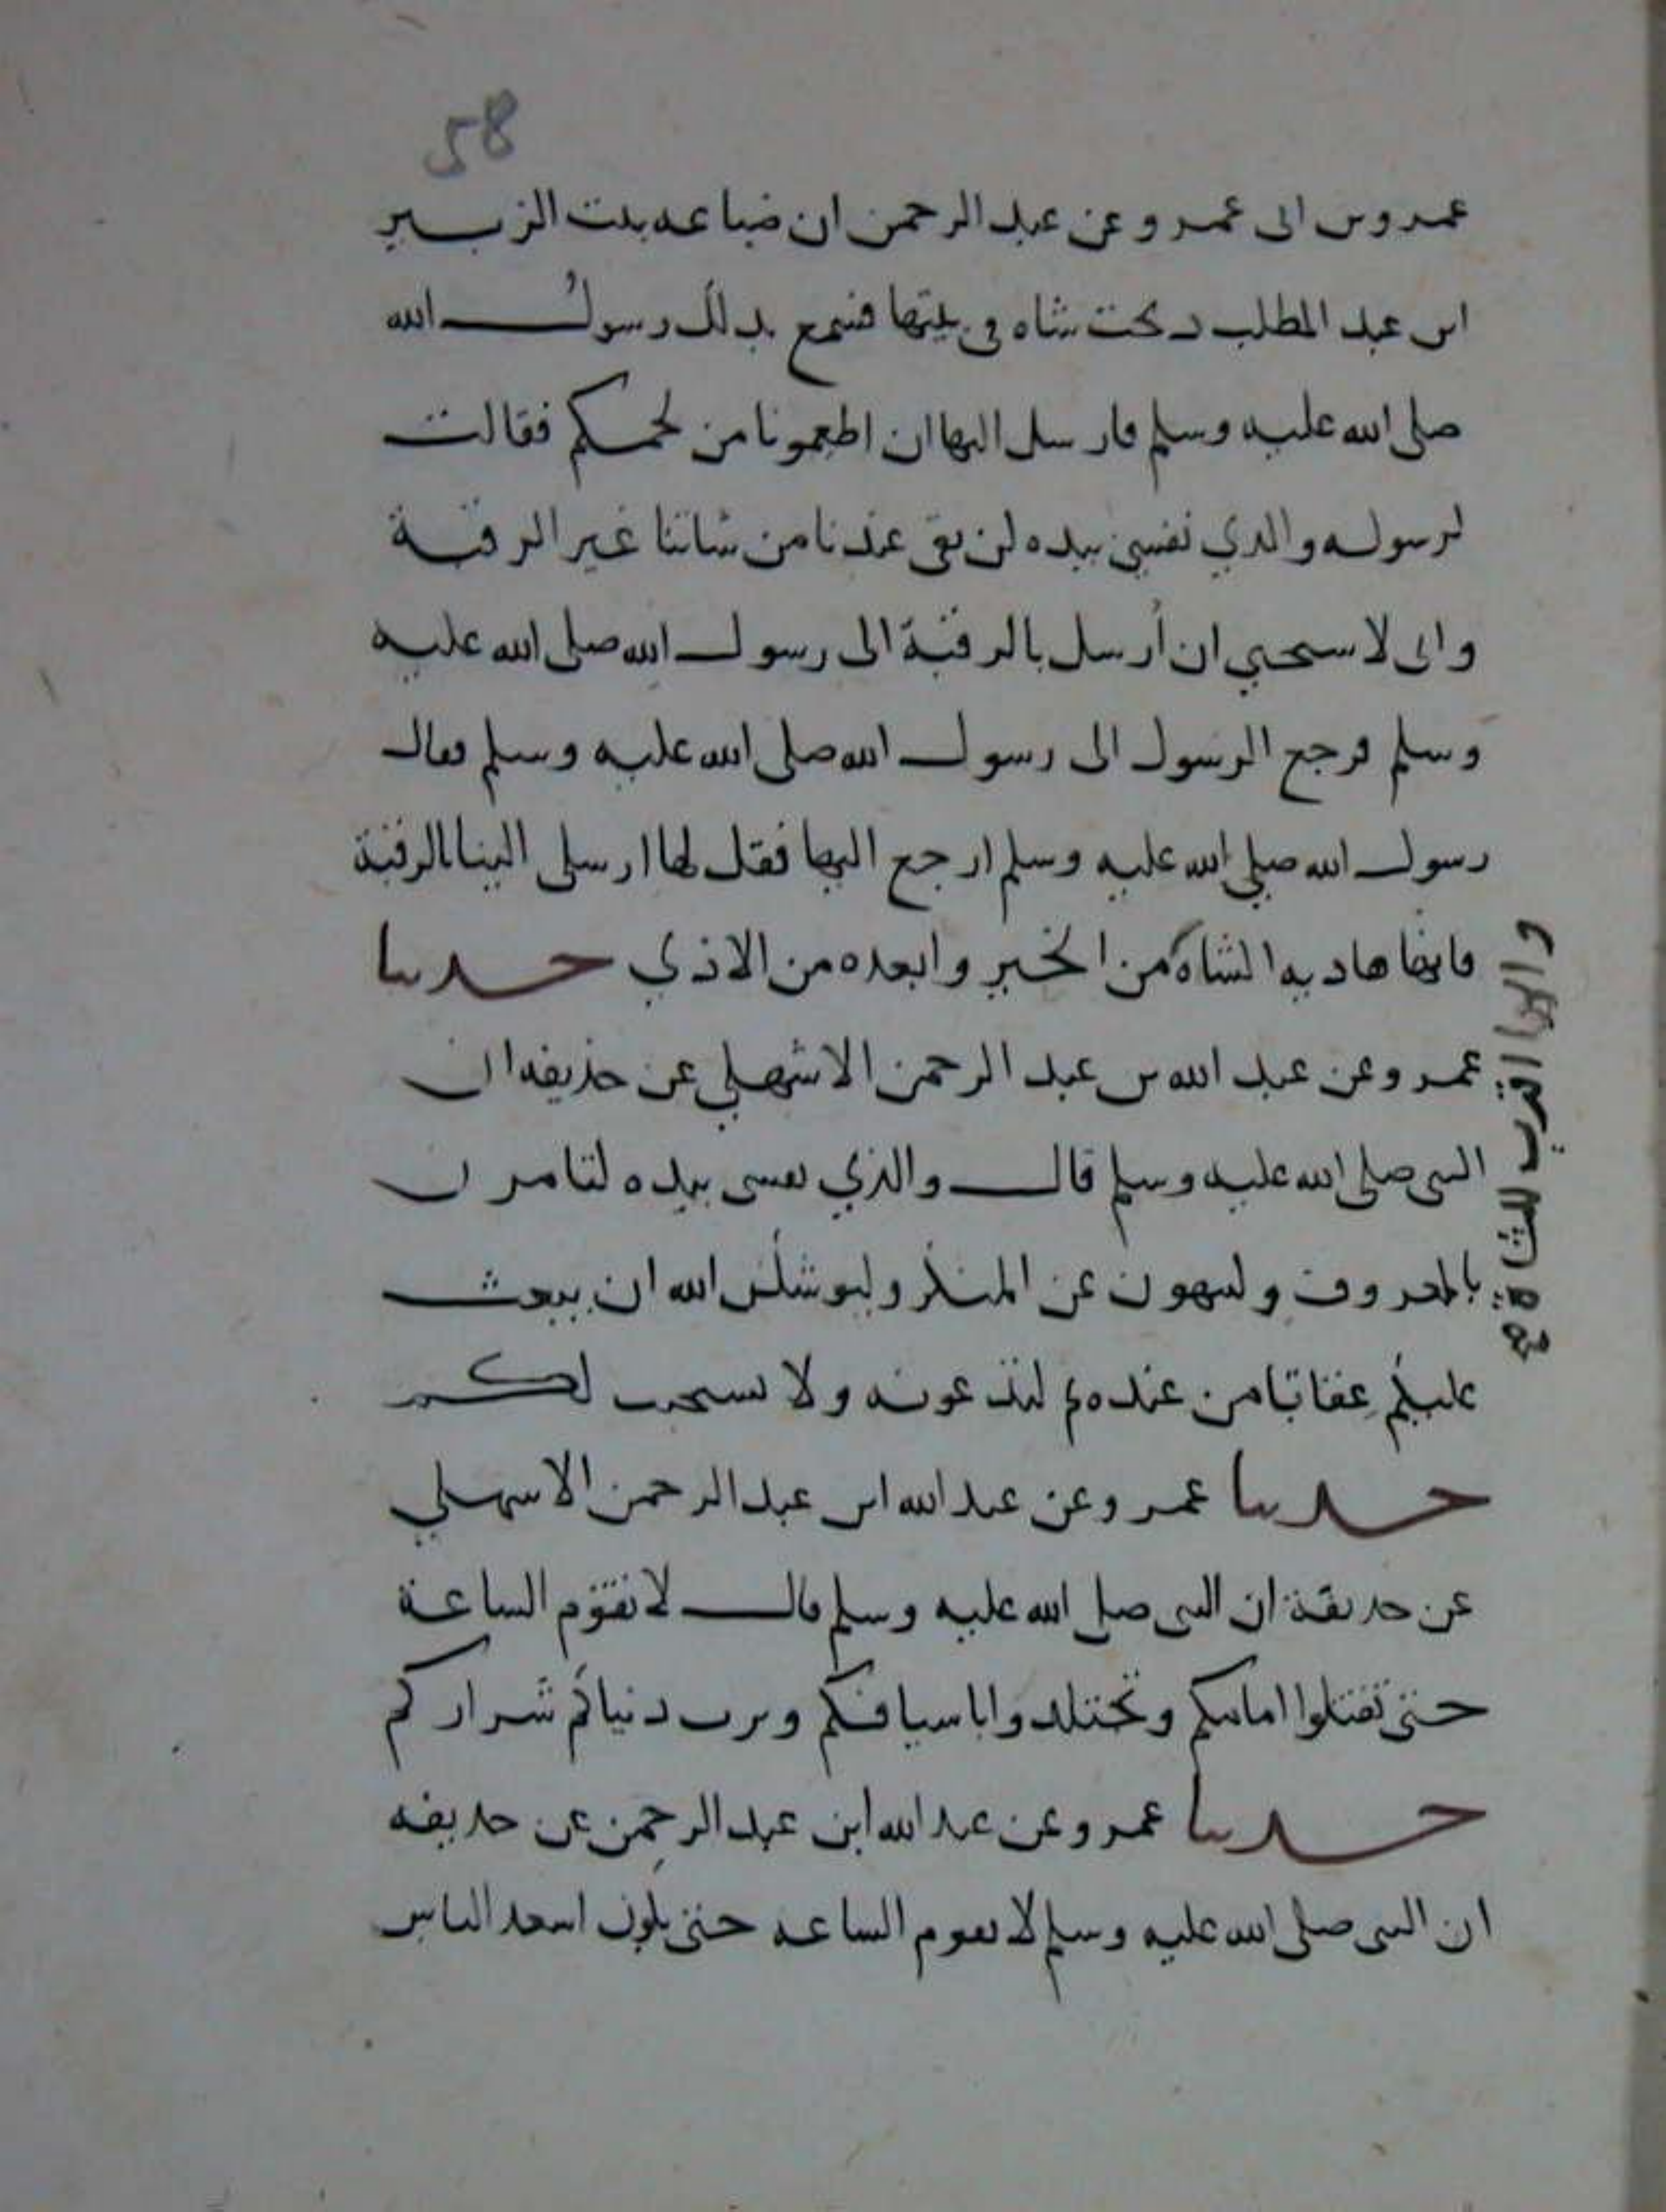 58
عمرو بن ابى عمرو عن عبد الرحمن ان ضباعه بنت الزبير
ابن عبد المطلب دبحت شاه فى بيتها فسمع بدلك رسول الله
صلى الله عليه وسلم فارسل اليها ان اطعمونا من لحمكم فقالت
لرسوله والدي نفسي بيده لن بقى عندنا من شاتنا غير الرقبة
وانى لاستحيي ان أرسل بالرقبة الى رسول الله صلى الله عليه
وسلم فرجع الرسول الى رسول الله صلى الله عليه وسلم فقال
رسول الله صلي الله عليه وسلم ارجع اليها فقل لها ارسلى الينا بالرقبة
فانها هاديه الشاه من الخير وابعده من الاذي حدثنا
عمرو عن عبد الله بن عبد الرحمن الاشهلي عن حذيفه ان
النبى صلى الله عليه وسلم قال والذي نفسى بيده لتامرن
بالمعروف ولتنهون عن المنكر وليوشكن الله ان يبعث
عليكم عقابا من عنده ثم لتدعونه ولا نستجيب لكم
حدثنا عمرو عن عبد الله ابن عبد الرحمن الاسهلي
عن حديقة ان النبى صلى الله عليه وسلم قال لا تقوم الساعة
حتى تقتلوا امامكم وتجتلدوا باسيافكم ويرث دنياكم شراركم
حدثنا عمرو عن عبد الله ابن عبد الرحمن عن حديفه
ان النبى صلى الله عليه وسلم لا تقوم الساعه حتى يكون اسعد الناس